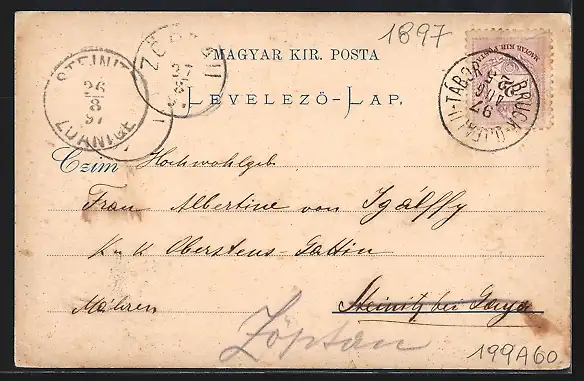 1897
MAGYAR KIR. POSTA
LEVELEZŐ-LAP.
STEINITZ
26
8
97
ZDANICE
ZÖPTAU
BRUCK-UJFALU-TÁBOR
97
MAGYAR KIR. POSTA
Czim Hochwohlgeb
Frau Albertine von Igálffy
K u K Oberstens-Gattin
Mähren Steinitz bei Gaya
Zöptau
199A60